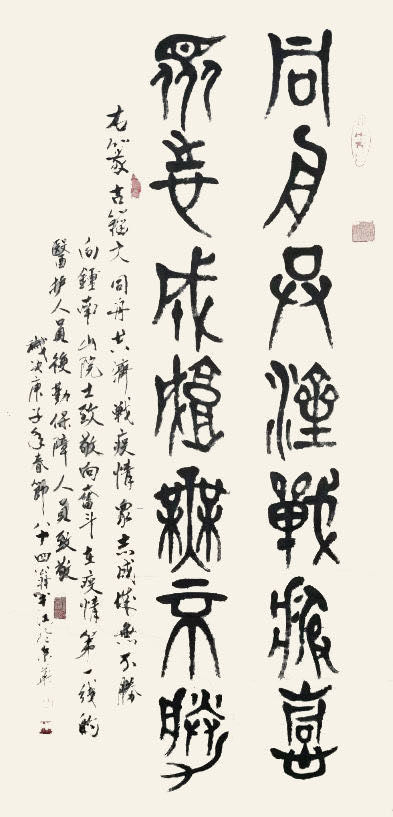 同舟共濟戰疫情
眾志成城無不勝
右篆古籀文同舟共濟戰疫情眾志成城無不勝
向鍾南山院士致敬向奮斗在疫情第一线的
醫护人員後勤保障人員致敬
歲次庚子年春節八十四翁